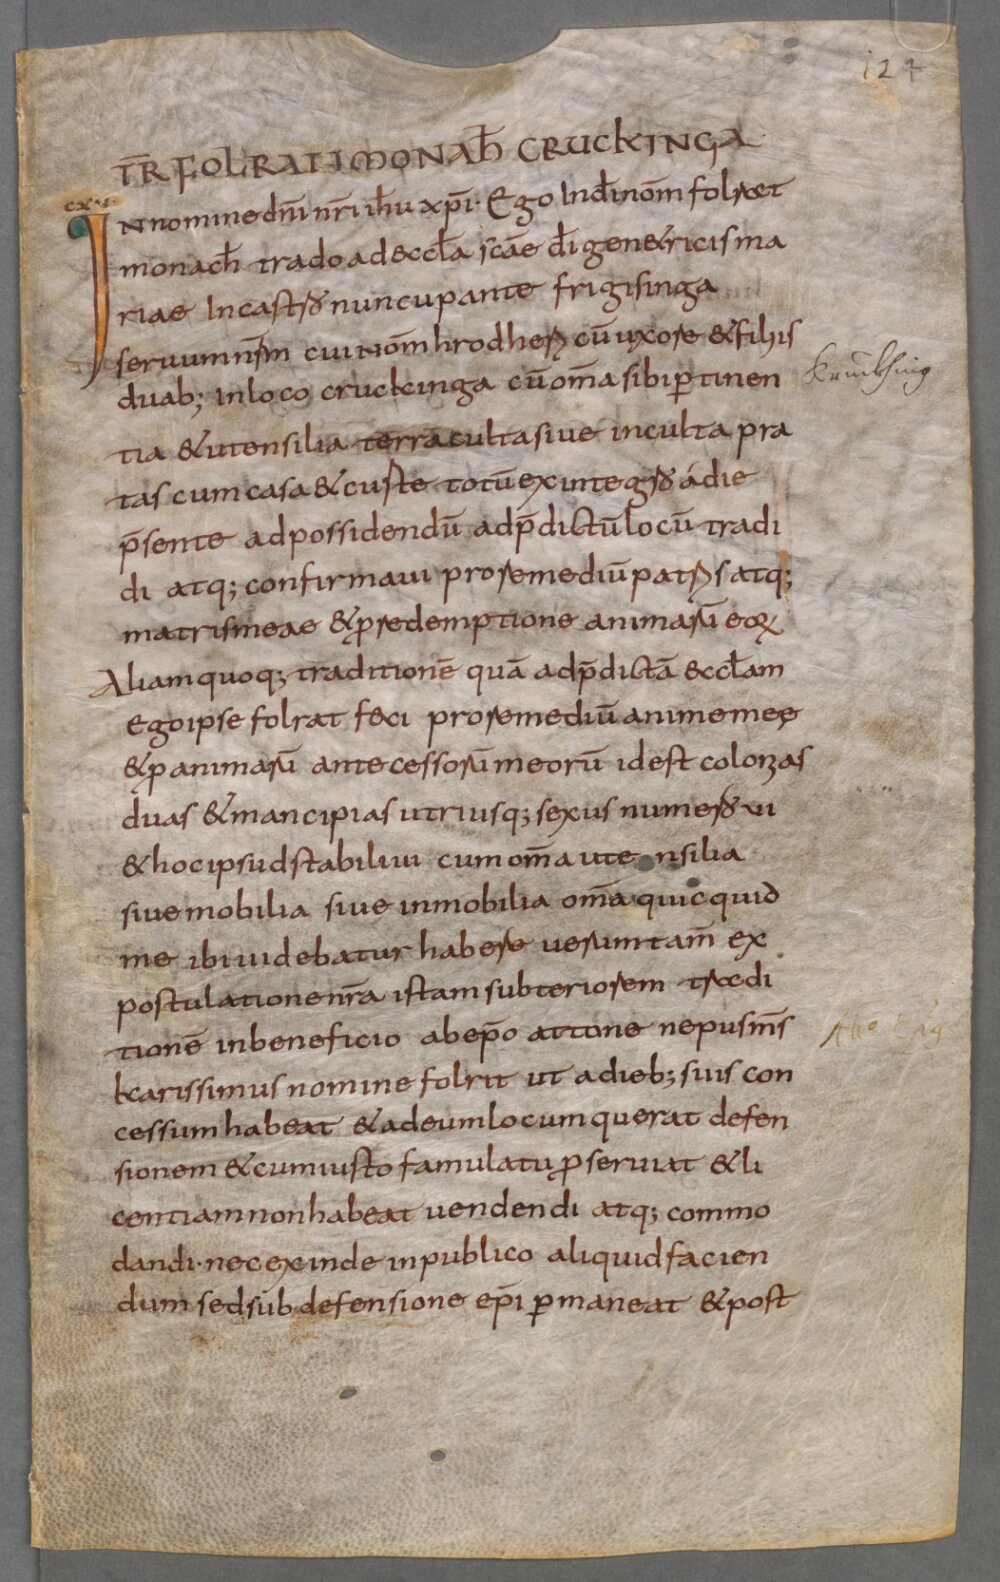 124
TR̄ FOLRATI MONAH̄ CRUCKINGA
cxv
IN nomine dn̄i nr̄i ih̄u xp̄i· Ego Ind̄i nom̄ folrat
monach̄ trado ad eccl̄a scāe d̄i genetricis ma
riae In castro nuncupante frigisinga
seruum nr̄m cui nom̄ hrodheri cū uxore & filiis
duab; in loco cruckinga cū om̄a sibi ꝑtinen
tia & utensilia terra culta siue inculta pra
tas cum casa & curte totū ex integro á die
p̄sente ad possidendū ad p̄dictū locū tradi
di atq; confirmaui pro remediū patris atq;
matris meae & ꝓ redemptione animarū eoꝝ
Aliam quoq; traditionē quā ad p̄dictā eccl̄am
Ego ipse folrat feci pro remediū anime meę
& ꝓ animarū antecessorū meorū id est colonias
duas & mancipias utriusq; sexus numero vi
& hoc ipsud stabiliui cum om̄a utensilia
siue mobilia siue inmobilia om̄a quicquid
me ibi uidebatur habere uerumtam̄ ex
postulatione nr̄a istam subteriorem tradi
tionē in beneficio ab ep̄o attone nepus m̄s
kcarissimus nomine folrit ut adieb; suis con
cessum habeat & ad eum locum querat defen
sionem & cum iusto famulatu ꝓseruiat & li
centiam non habeat uendendi atq; commo
dandi· nec exinde in publico aliquid facien
dum sed sub defensione ep̄i ꝑmaneat & post